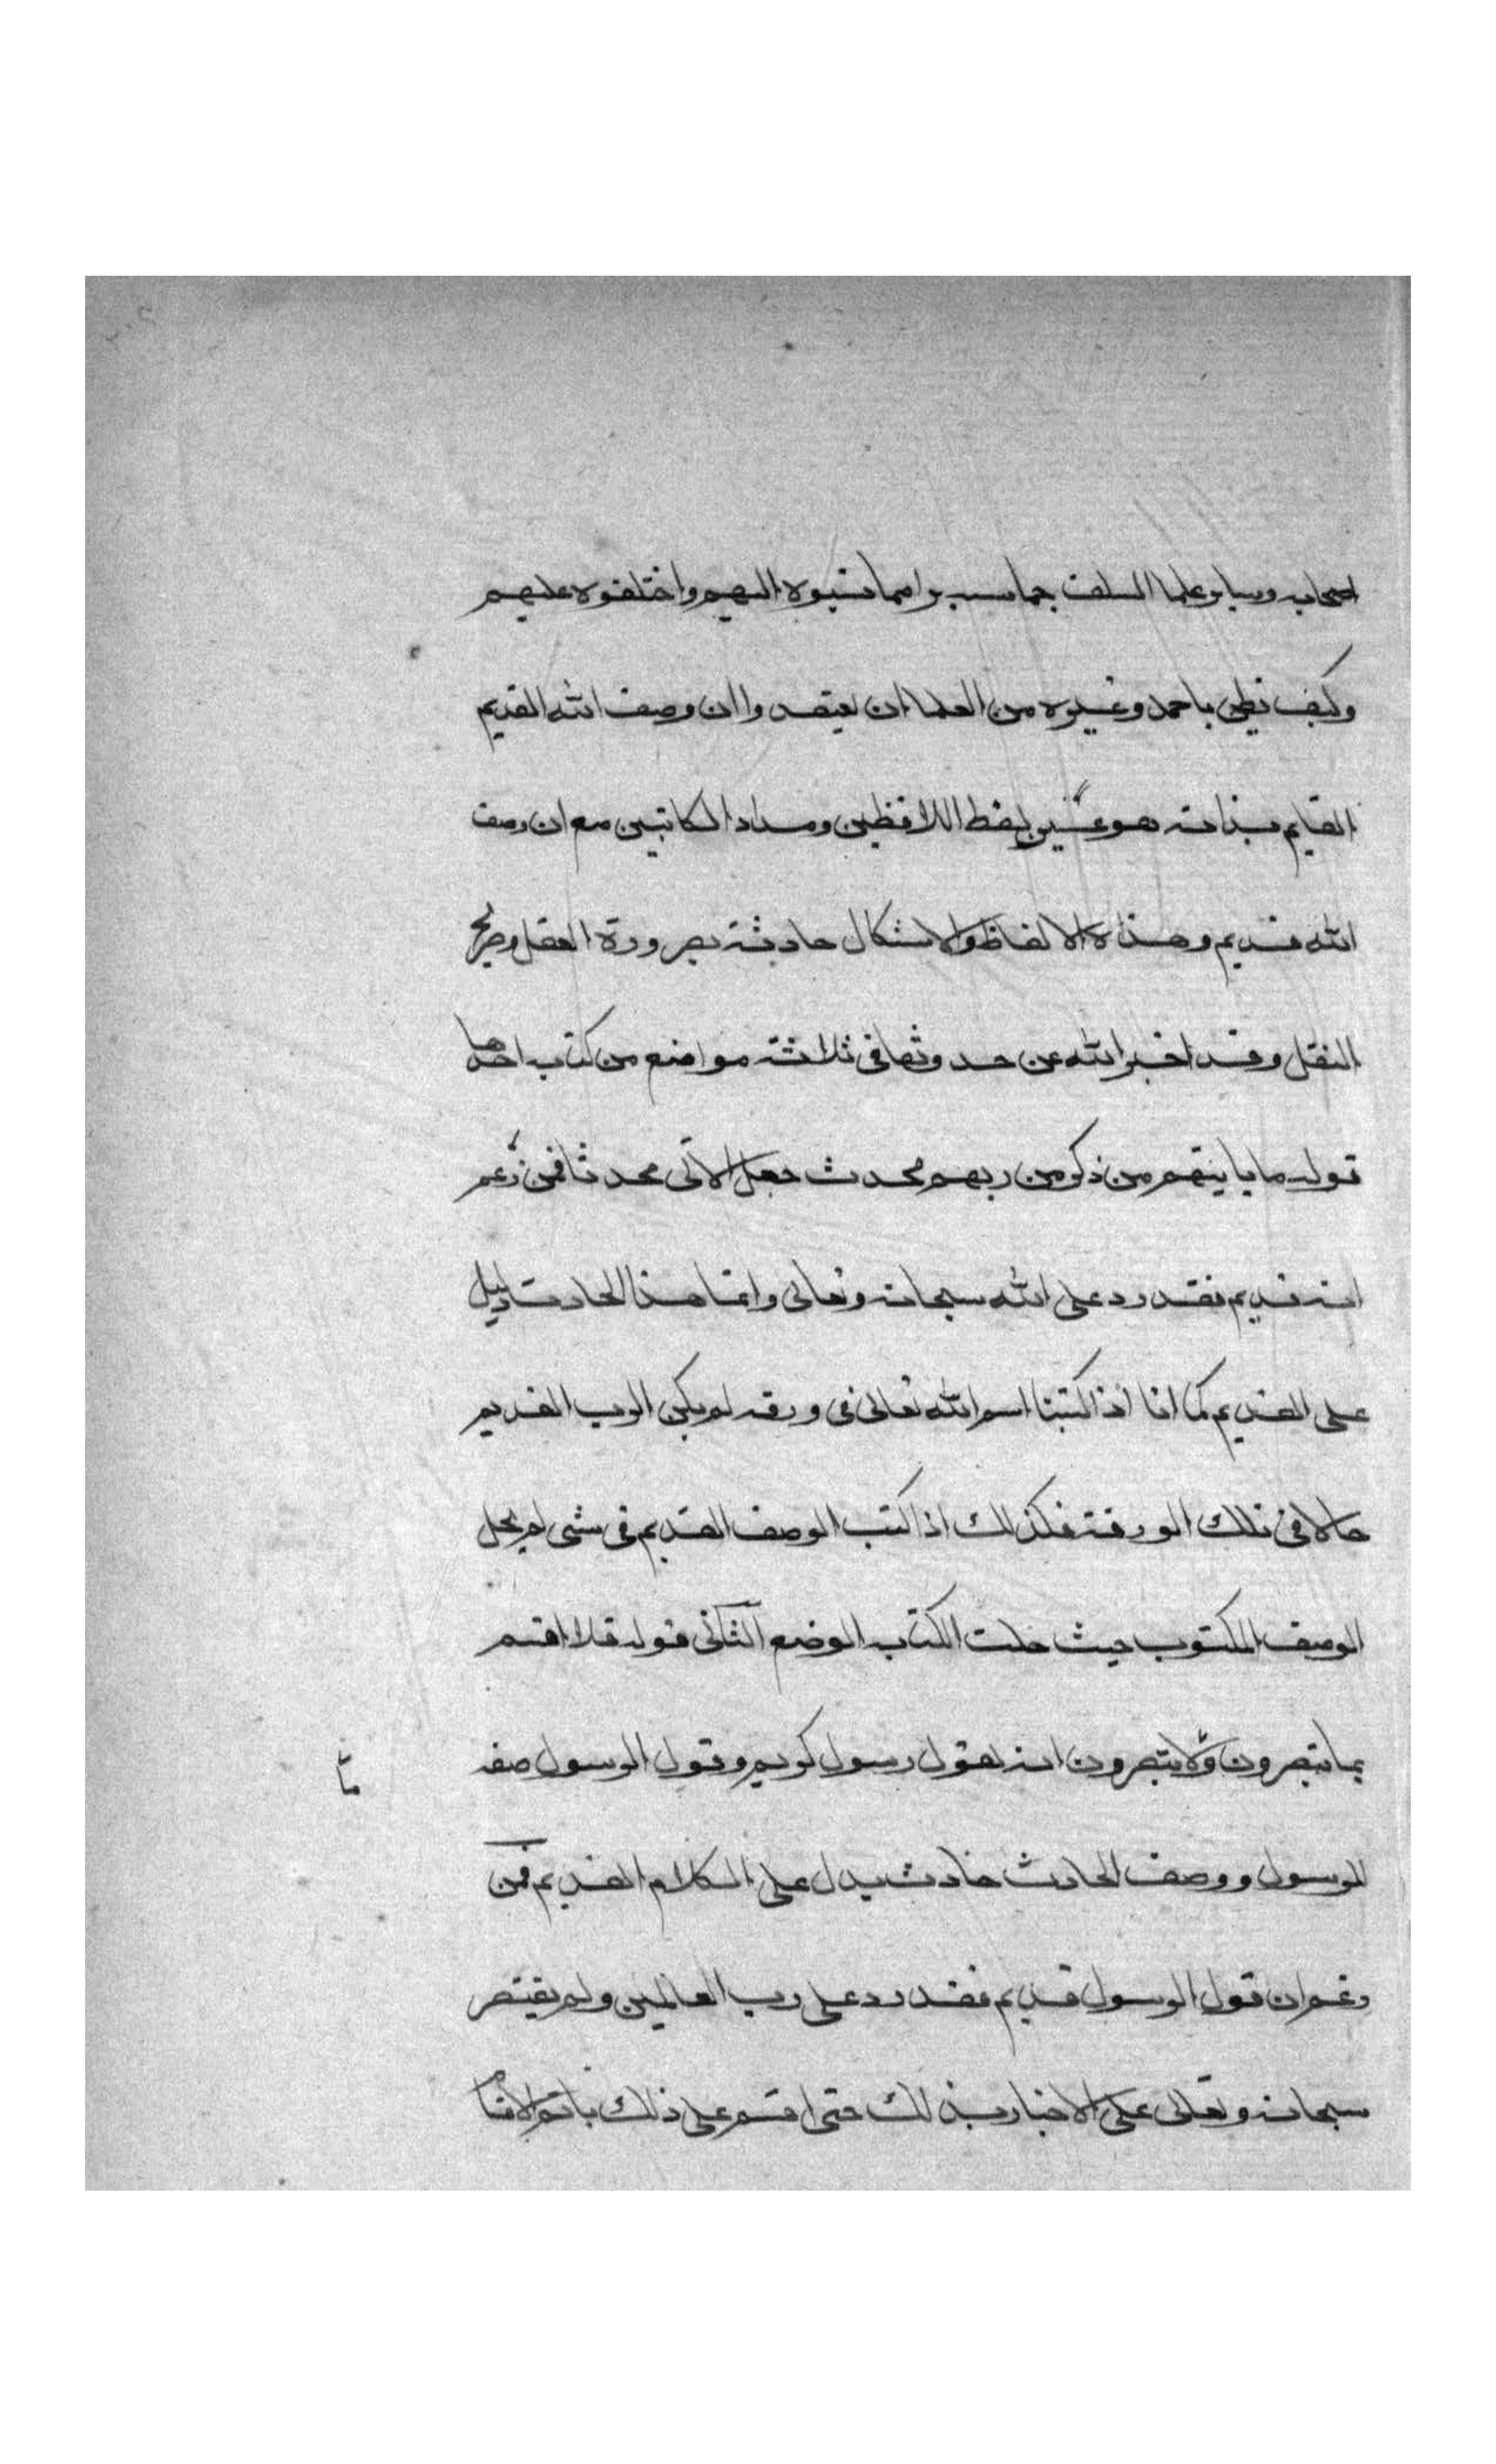 اصحابه وساير علما السلف جماسه براء مما نسبوه اليهم واختلقوه عليهم
وكيف نظن باحمد وغيره من العلما ان يعتقدوا ان وصف الله القديم
القايم بذاته هو عين لفظ اللافظين ومداد الكاتبين مع ان وصف
الله قديم وهذه الالفاظ والاشكال حادثة بضرورة العقل وصريح
النقل وقد اخبر الله عن حدوثها في ثلاثة مواضع من كتابه احدها
قوله ما ياتيهم من ذكر من ربهم محدث جعل الآتي محدثا فمن زعم
انه قديم فقد رد على الله سبحانه وتعالى وانما هذا الحادث دليل
على القديم كما انا اذا كتبنا اسم الله تعالى في ورقه لم يكن الرب القديم
حالا في تلك الورقة فكذلك اذا كتب الوصف القديم في شي لم يحل
الوصف المكتوب حيث حلت الكتابه الوضع الثاني قوله فلا اقسم
بما تبصرون ولا تبصرون انه لقول رسول كريم وقول الرسول صفه
ما
للرسول ووصف الحادث حادث يدل على الكلام القديم فمن
زعم ان قول الرسول قديم فقد رد على رب العالمين ولم يقتصر
سبحانه وتعالى على الاخبار بذلك حتى اقسم على ذلك باتم الاقسا